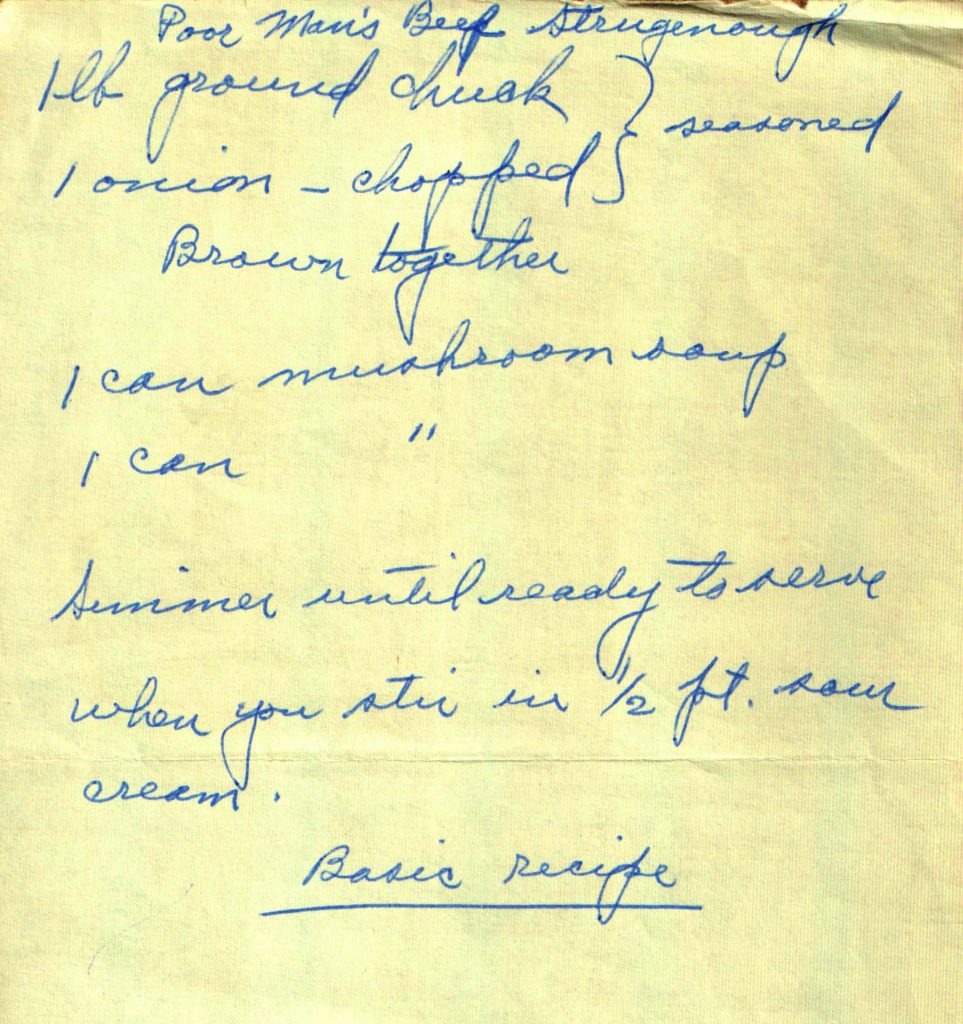 Poor Man's Beef Strugenough
1 lb ground chuck } seasoned
1 onion - chopped
Brown together
1 can mushroom soup
1 can "
Simmer until ready to serve
when you stir in 1/2 pt. sour
cream.
Basic recipe